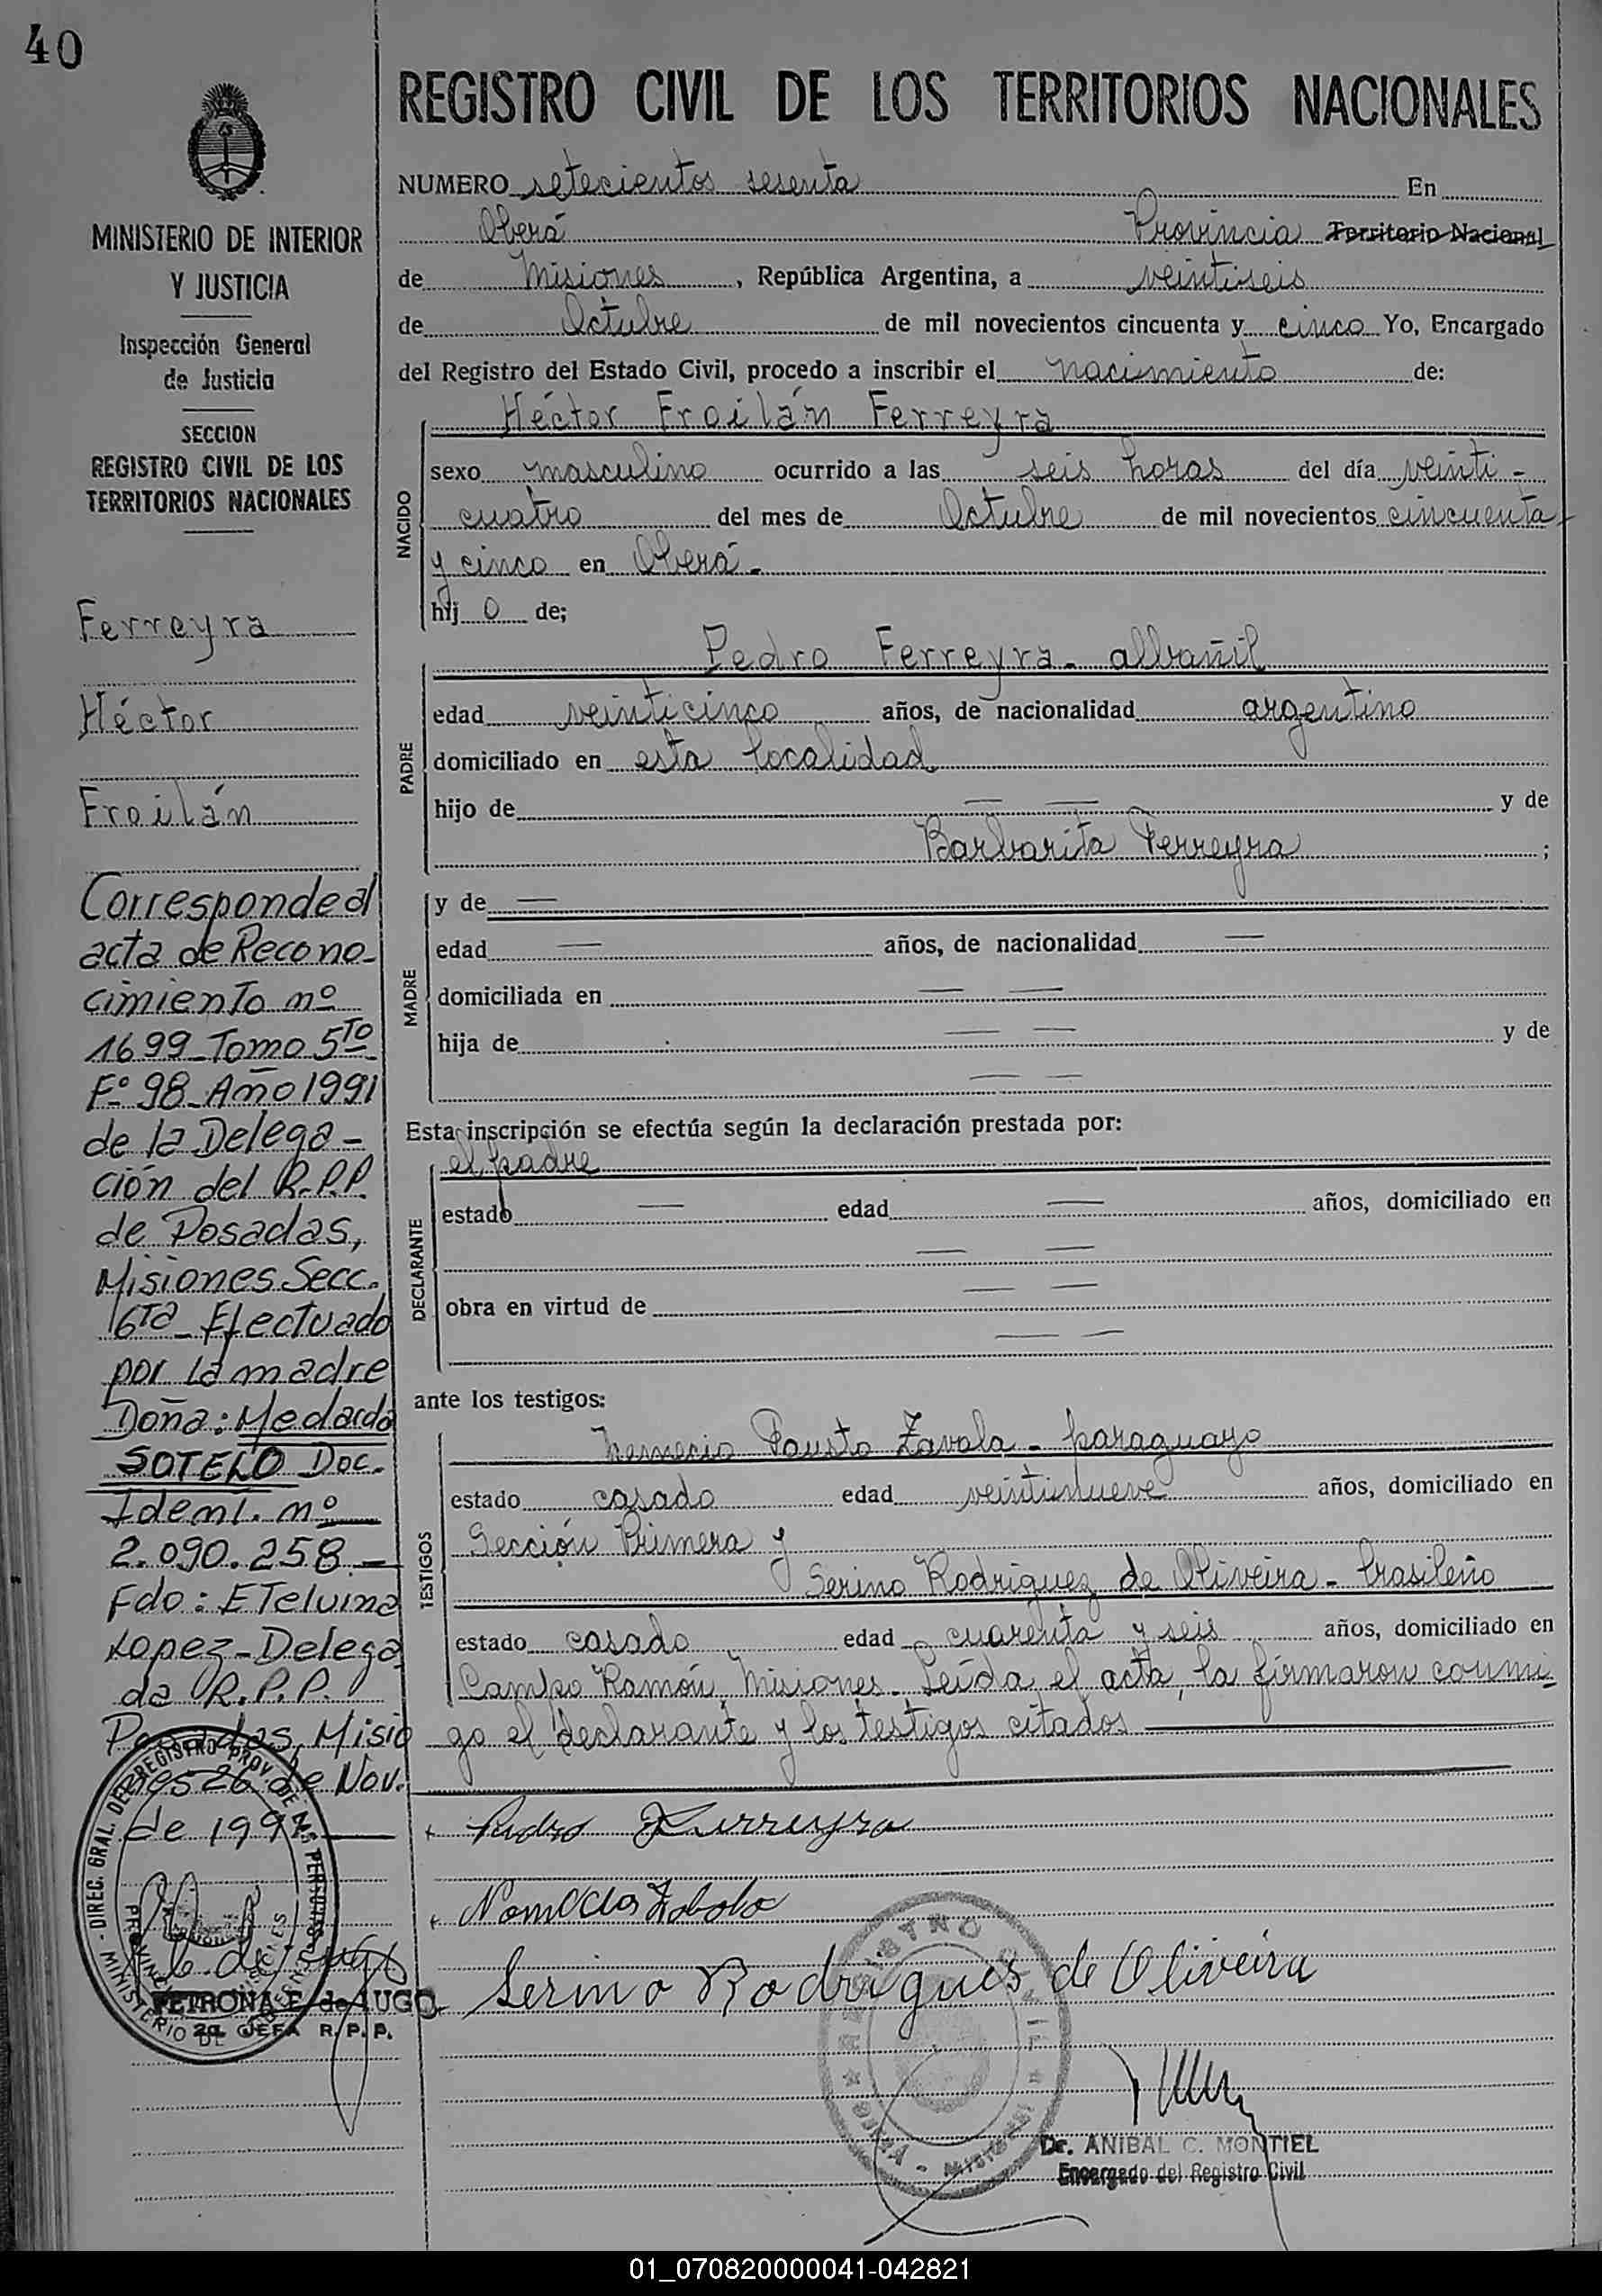 40
REGISTRO CIVIL DE LOS TERRITORIOS NACIONALES
MINISTERIO DE INTERIOR
Y JUSTICIA
Inspección General
de Justicia
SECCION
REGISTRO CIVIL DE LOS
TERRITORIOS NACIONALES
Ferreyra
Héctor
Froilán
Corresponde al
acta de Recono-
cimiento nº
1699 Tomo 5TO
Fº 98 Año 1991
de la Delega-
ción del R.P.P.
de Posadas,
Misiones Secc.
6Ta - Efectuado
por la madre
Doña: Medarda
SOTELO Doc.
Ident. nº
2.090.258.-
Fdo: ETelvina
Lopez - Delega
da R.P.P.
Posadas, Misio
nes 26 de Nov.
de 1991.
PETRONA E. de LUGO
2a. JEFA R. P. P.
NUMERO setecientos sesenta En
Oberá Provincia Territorio Nacional
de Misiones, República Argentina, a veintiseis
de Octubre de mil novecientos cincuenta y cinco Yo, Encargado
del Registro del Estado Civil, procedo a inscribir el nacimiento de:
NACIDO
Héctor Froilán Ferreyra
sexo masculino ocurrido a las seis horas del día veinti-
cuatro del mes de Octubre de mil novecientos cincuenta
y cinco en Oberá.-
hij o de;
PADRE
Pedro Ferreyra - albañil
edad veinticinco años, de nacionalidad argentino
domiciliado en esta localidad
hijo de — — y de
Barbarita Ferreyra ;
MADRE
y de —
edad — años, de nacionalidad —
domiciliada en — —
hija de — — y de
— —
Esta inscripción se efectúa según la declaración prestada por:
DECLARANTE
el padre
estado — edad — años, domiciliado en
— —
obra en virtud de — —
— —
ante los testigos:
TESTIGOS
Nemecio Fausto Zavala - paraguayo
estado casado edad veintinueve años, domiciliado en
Sección Primera y
Serino Rodriguez de Oliveira - brasileño
estado casado edad cuarenta y seis años, domiciliado en
Campo Ramón, Misiones. Leída el acta, la firmaron conmi-
go el declarante y los testigos citados
Pedro Ferreyra
Serino Rodrigues de Oliveira
Dr. ANIBAL C. MONTIEL
Encargado del Registro Civil
01_070820000041-042821